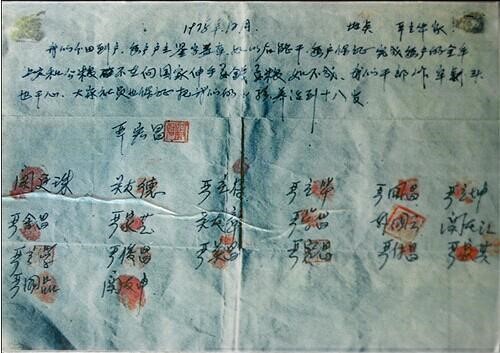 1978年12月. 地点 严立华家!
我们分田到户,每户户主签字盖章,如以后能干,每户保证完成每户的全年
上交和公粮,不在向国家伸手要钱要粮,如不成,我们干部作牢刹头
也干心,大家社员也保证把我们的小孩养活到十八岁.
严宏昌
关廷珠 关友德 严立符 严立华 严国昌 严立坤
严金昌 严家芝 关友章 严学昌 韩国云 关友江
严立学 严俊昌 严美昌 严宏昌 严付昌 严家其
严国品 关友申